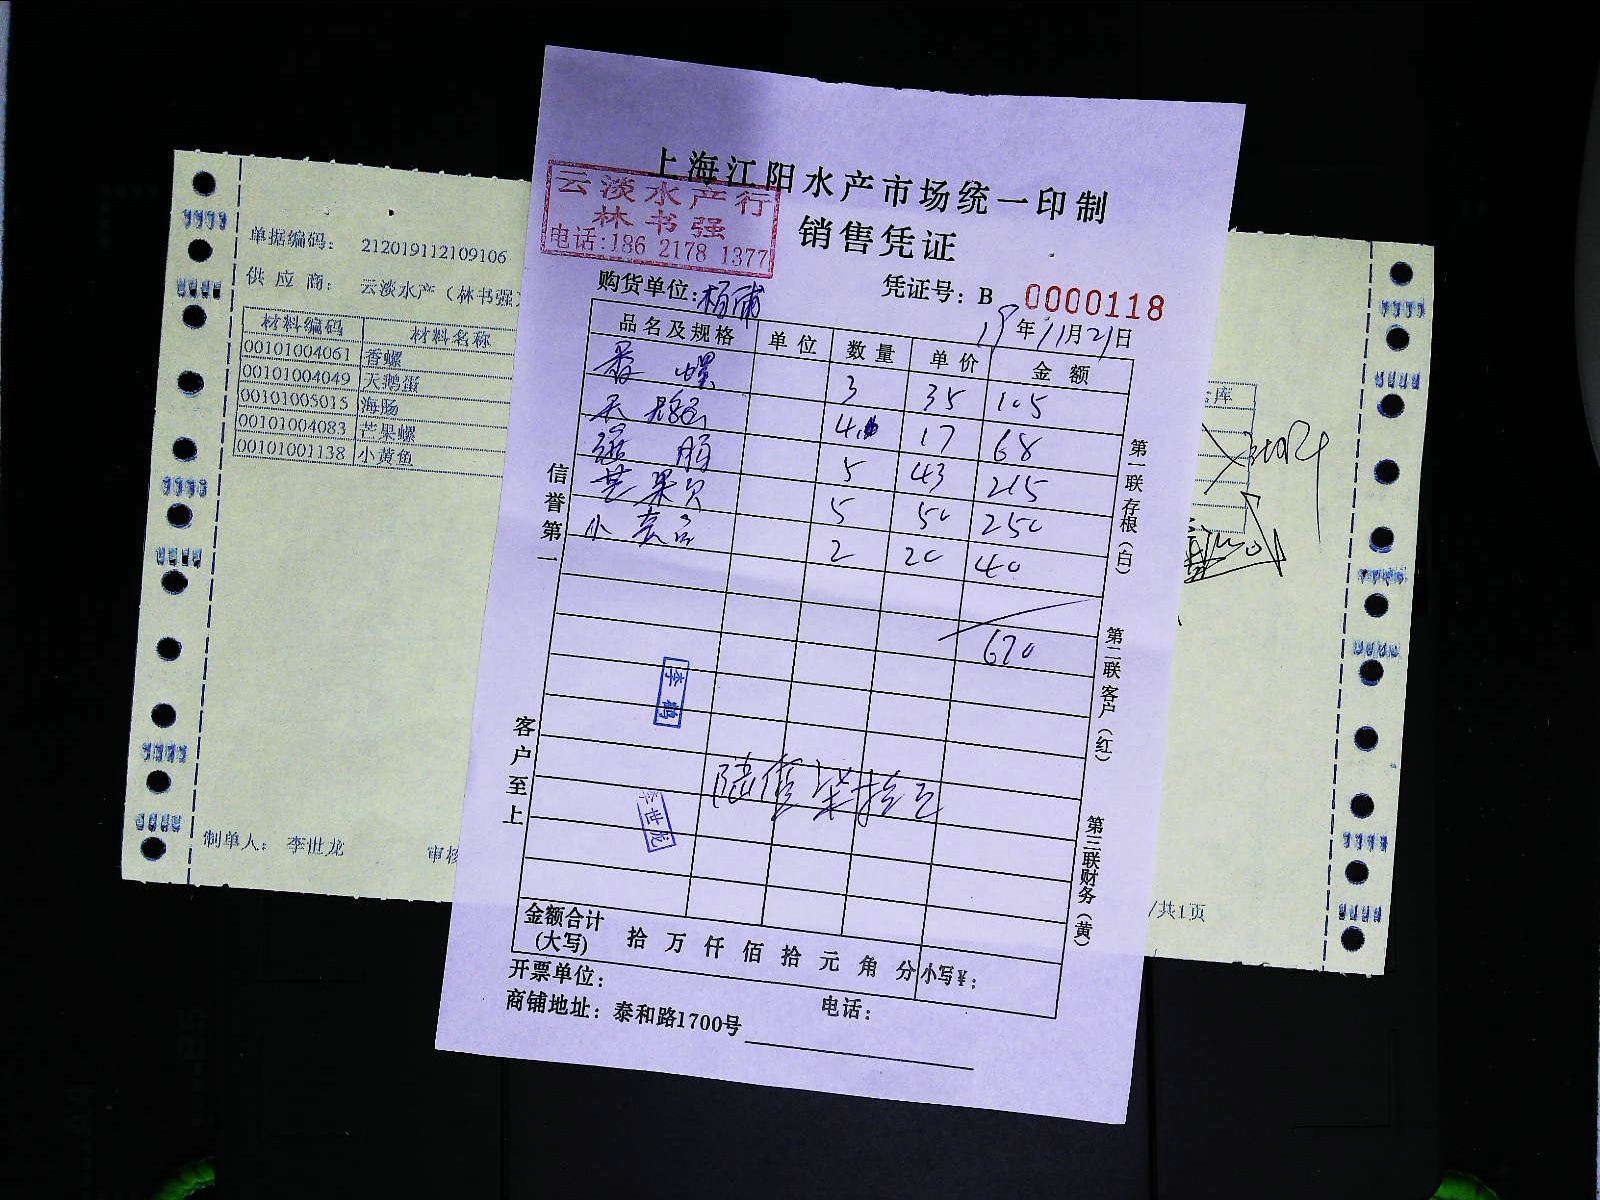 上海江阳水产市场统一印制
销售凭证
云淡水产行
林书强
电话:186 2178 1377
购货单位:杨浦
凭证号: B 0000118
19年11月21日
品名及规格 单位 数量 单价 金额
香螺 3 35 105
天鹅蛋 4 17 68
海肠 5 43 215
芒果贝 5 50 250
小黄鱼 2 20 40
670
李鹤
陆佰柒拾元
李世龙
信誉第一
客户至上
第一联存根(白)
第二联客户(红)
第三联财务(黄)
金额合计
(大写) 拾 万 仟 佰 拾 元 角 分 小写¥:
开票单位: 电话:
商铺地址: 泰和路1700号
单据编码: 212019112109106
供应商: 云淡水产(林书强
材料编码 材料名称
00101004061 香螺
00101004049 天鹅蛋
00101005015 海肠
00101004083 芒果螺
00101001138 小黄鱼
制单人: 李世龙 审核
库
/共1页